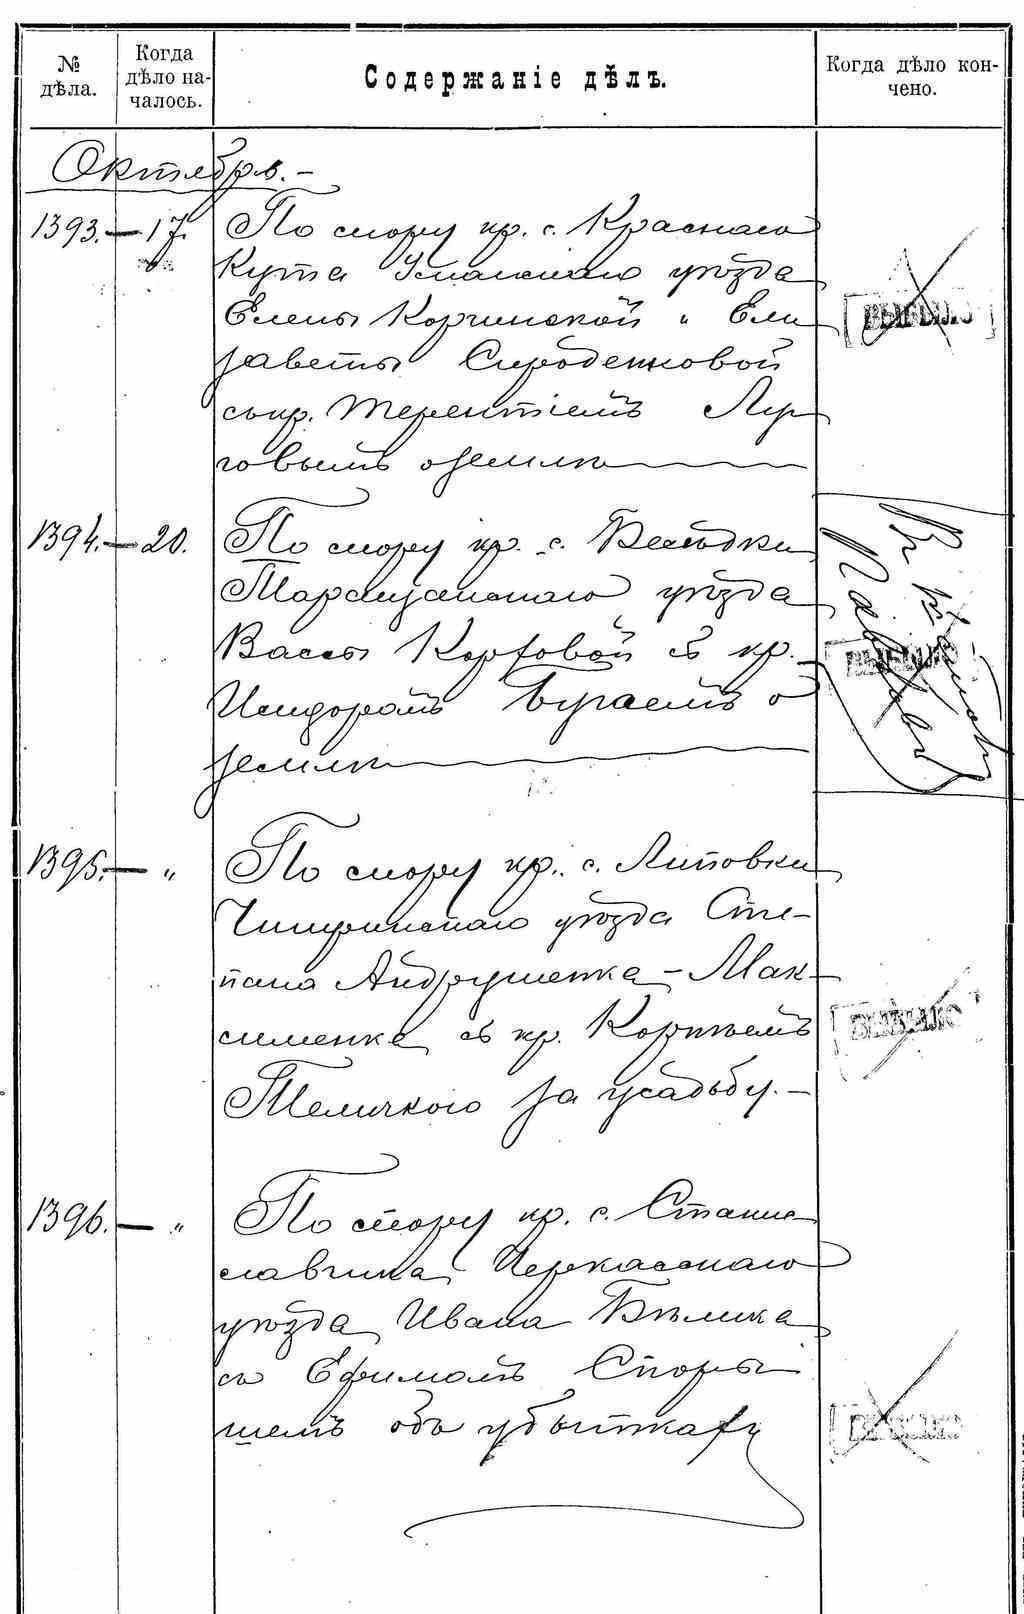 № дѣла.
Когда дѣло на-
чалось.
Содержаніе дѣлъ.
Когда дѣло кон-
чено.
Октябрь.-
1393. — 17. По спору кр. с. Краснаго
Кута Уманскаго уѣзда
Елены Корчинской и Ели
заветы Сироденковой
съ кр. Терентіемъ Лу
говымъ о землѣ
1394. — 20. По спору кр. с.
Таращанскаго уѣзда
Вассы съ кр.
Исидоромъ Бугаемъ о
землѣ
ВЫБЫЛО
1395. — „ По спору кр. с. Липовки
Чигринскаго уѣзда Сте-
пана Андрущенка-Мак-
сименка съ кр. Корнѣемъ
Теличкого за усадьбу.-
ВЫБЫЛО
1396. — „ По спору кр. с. Станис
лавчика Черкасскаго
уѣзда Ивана Бѣлика
съ Ефимомъ Споры
шемъ объ убыткахъ
ВЫБЫЛО